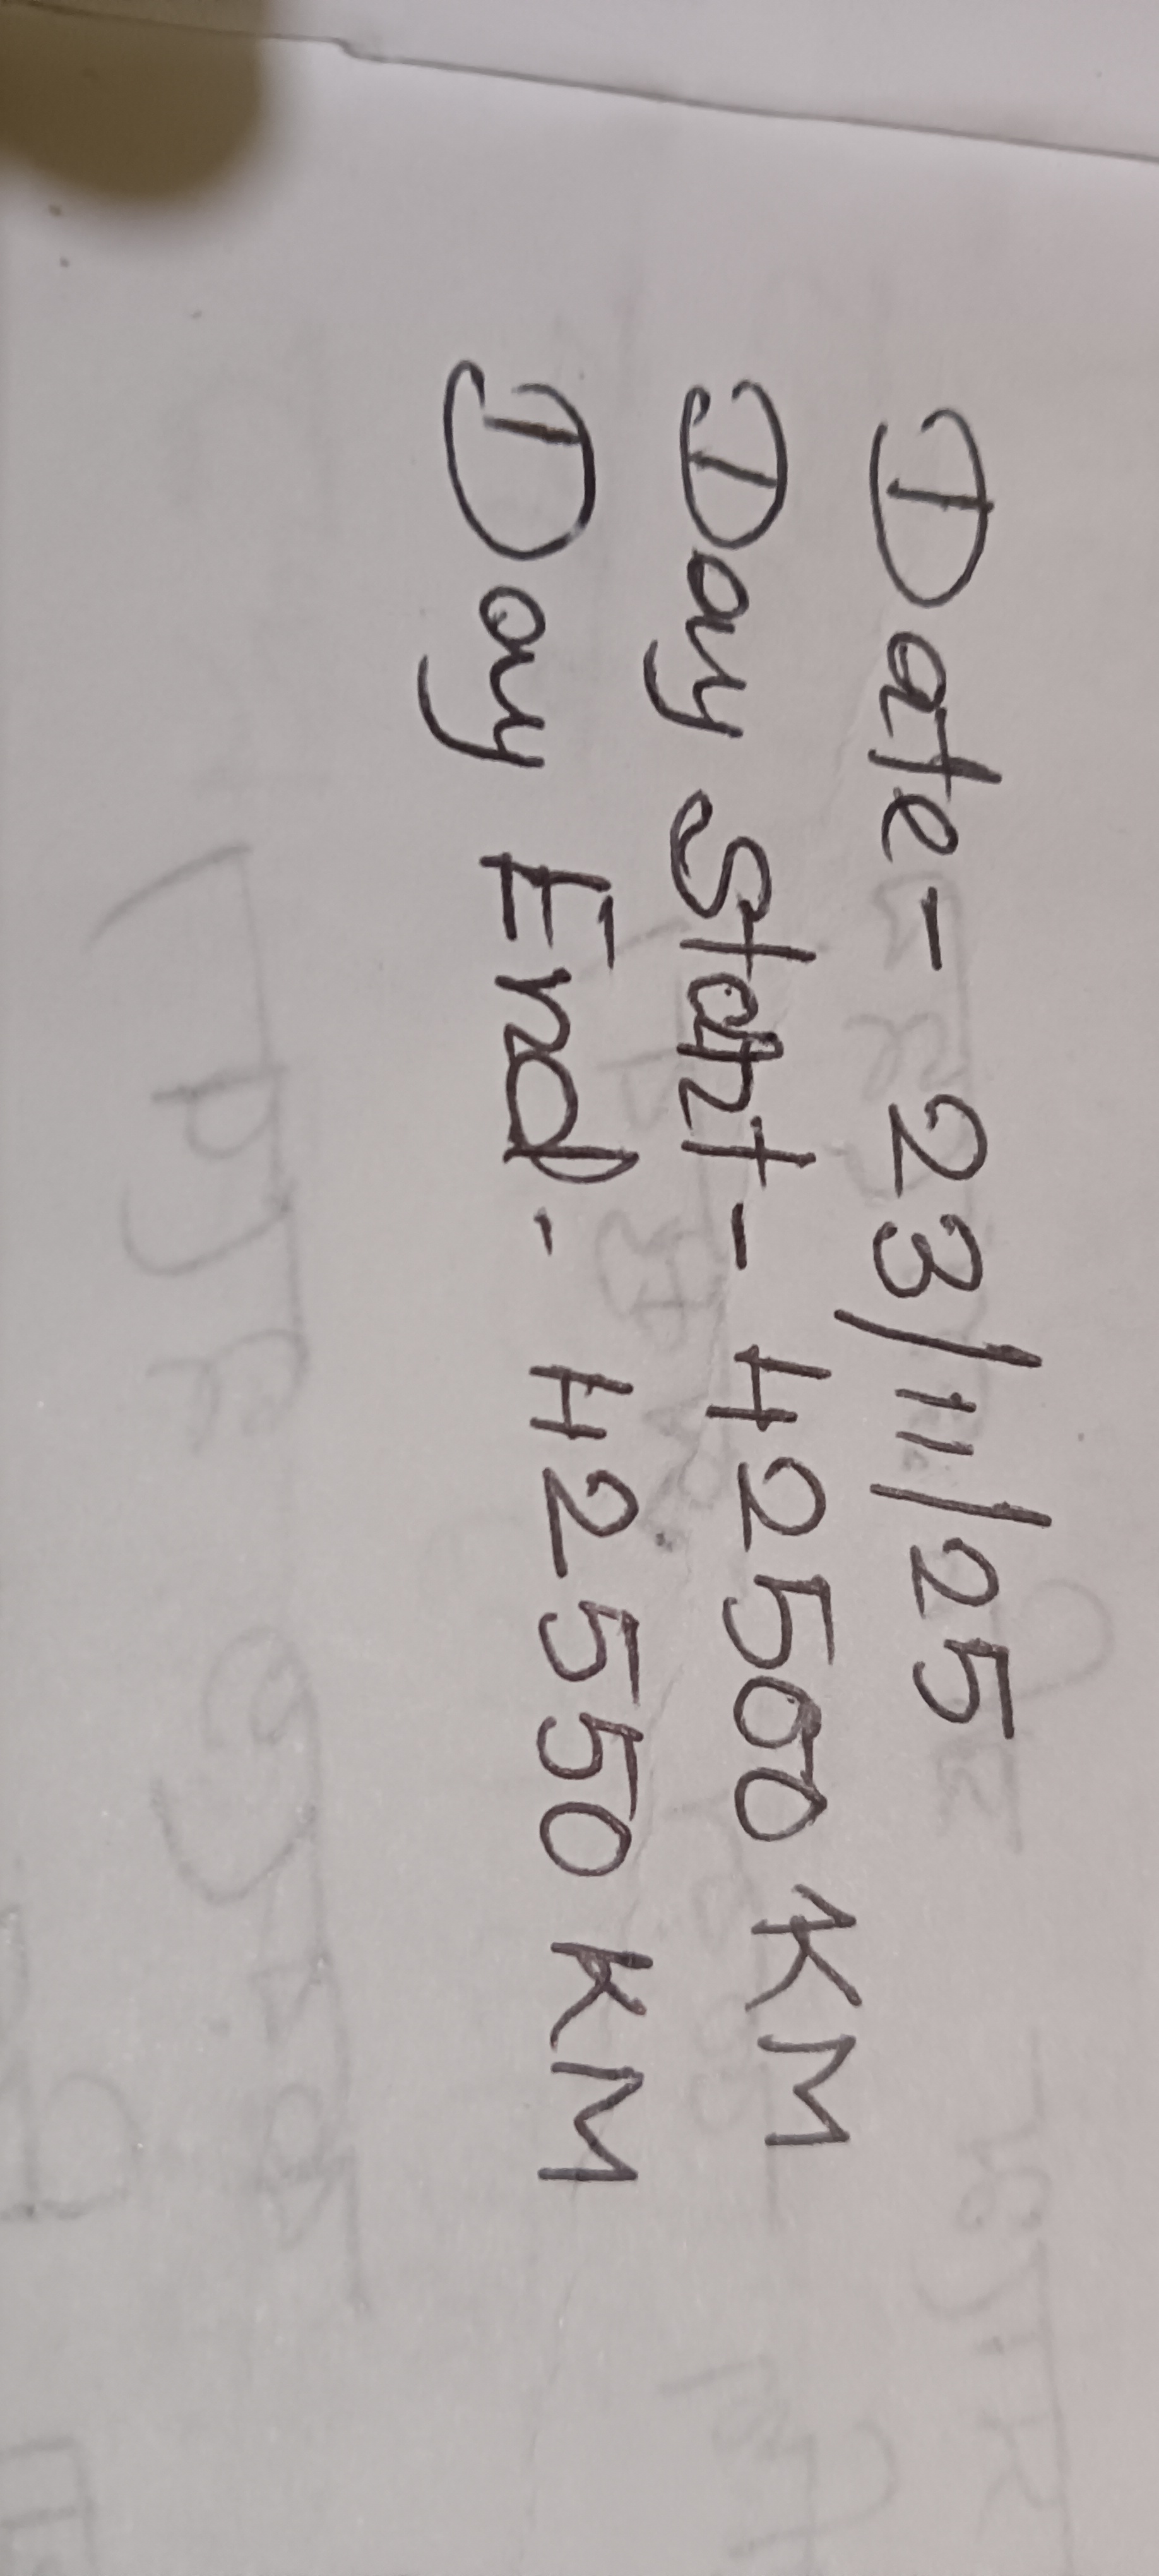 Date - 23/11/25
Day Start - 42500 KM
Day End - 42550 KM